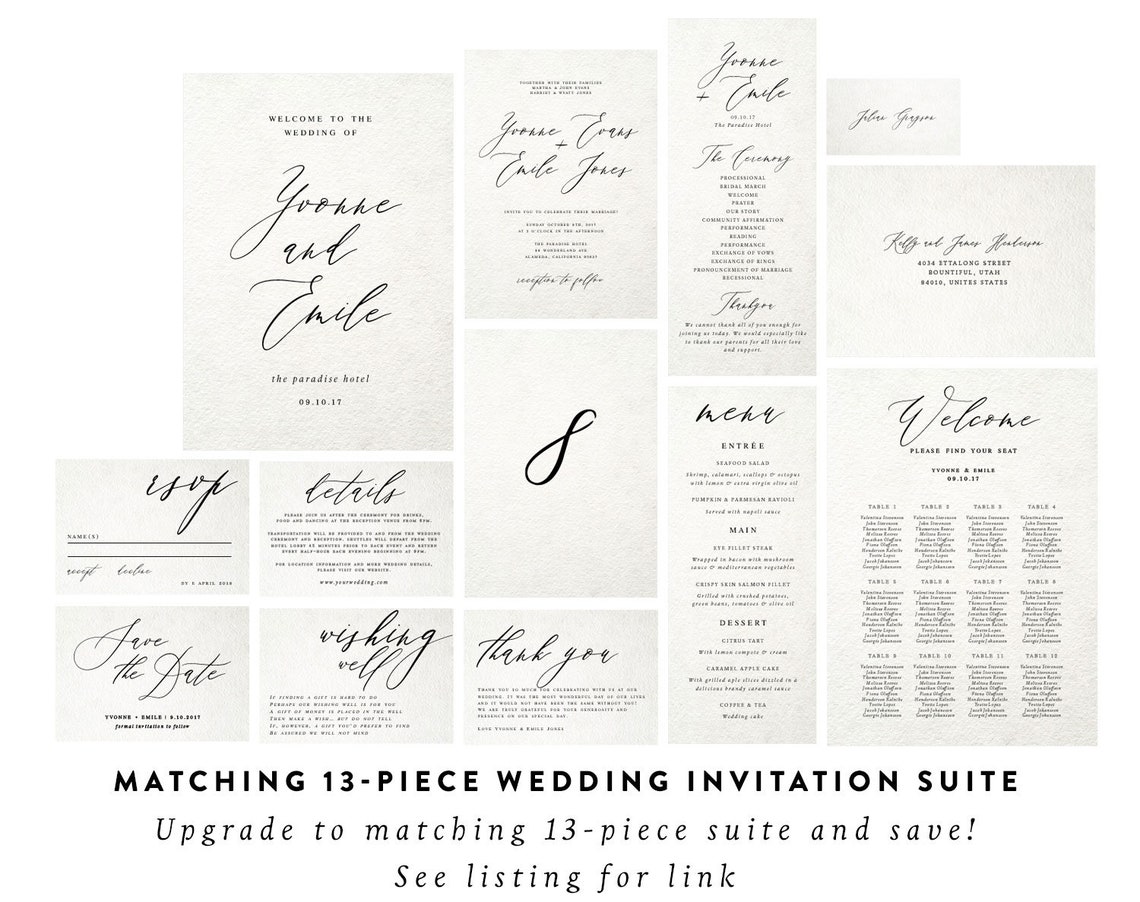 WELCOME TO THE
WEDDING OF
Yvonne
and
Emile
the paradise hotel
09.10.17
TOGETHER WITH THEIR FAMILIES
MARTHA & JOHN EVANS
HARRIET & WYATT JONES
Yvonne Evans
+
Emile Jones
INVITE YOU TO CELEBRATE THEIR MARRIAGE!
SUNDAY OCTOBER 9TH, 2017
AT 3 O'CLOCK IN THE AFTERNOON
THE PARADISE HOTEL
88 WONDERLAND AVE
ALAMEDA, CALIFORNIA 90882
reception to follow
Yvonne
+ Emile
09.10.17
The Paradise Hotel
The Ceremony
PROCESSIONAL
BRIDAL MARCH
WELCOME
PRAYER
OUR STORY
COMMUNITY AFFIRMATION
PERFORMANCE
READING
PERFORMANCE
EXCHANGE OF VOWS
EXCHANGE OF RINGS
PRONOUNCEMENT OF MARRIAGE
RECESSIONAL
Thankyou
We cannot thank all of you enough for
joining us today. We would especially like
to thank our parents for all their love
and support.
Kelly and James Henderson
4034 ETTALONG STREET
BOUNTIFUL, UTAH
84010, UNITED STATES
8
menu
ENTRÉE
SEAFOOD SALAD
Shrimp, calamari, scallops & octopus
with lemon & extra virgin olive oil
PUMPKIN & PARMESAN RAVIOLI
Served with napoli sauce
MAIN
EYE FILLET STEAK
Wrapped in bacon with mushroom
sauce & mediterranean vegetables
CRISPY SKIN SALMON FILLET
Grilled with crushed potatoes,
green beans, tomatoes & olive oil
DESSERT
CITRUS TART
With lemon compote & cream
CARAMEL APPLE CAKE
With grilled aple slices dizzled in a
delicious brandy caramel sauce
COFFEE & TEA
Wedding cake
Welcome
PLEASE FIND YOUR SEAT
YVONNE & EMILE
09.10.17
TABLE 1 TABLE 2 TABLE 3 TABLE 4
TABLE 5 TABLE 6 TABLE 7 TABLE 8
TABLE 9 TABLE 10 TABLE 11 TABLE 12
rsvp
NAME(S)
accept decline
BY 8 APRIL 2018
details
PLEASE JOIN US AFTER THE CEREMONY FOR DRINKS,
FOOD AND DANCING AT THE RECEPTION VENUE FROM 6PM.
TRANSPORTATION WILL BE PROVIDED TO AND FROM THE WEDDING
CEREMONY AND RECEPTION, SHUTTLES WILL DEPART FROM THE
HOTEL LOBBY 45 MINUTES PRIOR TO EACH EVENT AND RETURN
EVERY HALF-HOUR EACH EVENING BEGINNING AT 9PM.
FOR LOCATION INFORMATION AND MORE WEDDING DETAILS,
PLEASE VISIT OUR WEBSITE.
www.yourwedding.com
Save
the Date
YVONNE + EMILE | 9.10.2017
formal invitation to follow
wishing
well
IF FINDING A GIFT IS HARD TO DO
PERHAPS OUR WISHING WELL IS FOR YOU
A GIFT OF MONEY IS PLACED IN THE WELL
THEN MAKE A WISH... BUT DO NOT TELL
IF, HOWEVER, A GIFT YOU'D PREFER TO FIND
BE ASSURED WE WILL NOT MIND
thank you
THANK YOU SO MUCH FOR CELEBRATING WITH US AT OUR
WEDDING. IT WAS THE MOST WONDERFUL DAY OF OUR LIVES
AND IT WOULD NOT HAVE BEEN THE SAME WITHOUT YOU!
WE ARE TRULY GRATEFUL FOR YOUR GENEROSITY AND
PRESENCE ON OUR SPECIAL DAY.
LOVE YVONNE & EMILE JONES
MATCHING 13-PIECE WEDDING INVITATION SUITE
Upgrade to matching 13-piece suite and save!
See listing for link